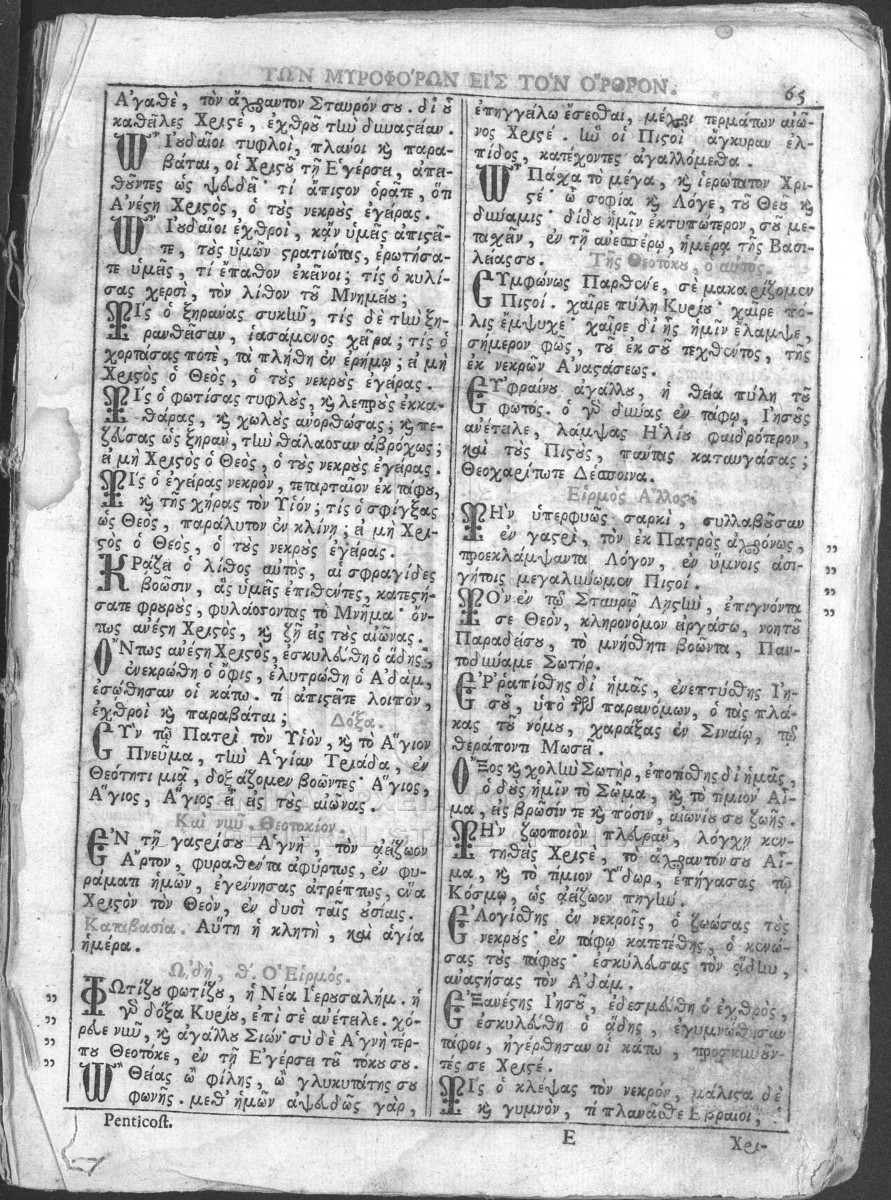 ΤΩΝ ΜΥΡΟΦΟΡΩΝ ΕΙΣ ΤΟΝ ΟΡΘΡΟΝ.
65
Ἀγαθὲ, τὸν ἄχραντον Σταυρόν σου. δι' οὗ
καθεῖλες Χριστὲ, ἐχθροῦ τὴν δυναστείαν.
Ὦ Ἰουδαῖοι τυφλοὶ, πλάνοι καὶ παρα-
βάται, οἱ Χριστοῦ τῇ Ἐγέρσει, ἀπει-
θοῦντες ὡς ψευδεῖ· τί ἄπιστον ὁρᾶτε, ὅτι
Ἀνέστη Χριστὸς, ὁ τοὺς νεκροὺς ἐγείρας.
Ὦ Ἰουδαῖοι ἐχθροὶ, κᾂν ὑμεῖς ἀπιστεῖ-
τε, τοὺς ὑμῶν στρατιώτας, ἐρωτήσα-
τε ὑμεῖς, τί ἔπαθον ἐκεῖνοι; τίς ὁ κυλί-
σας χερσὶ, τὸν λίθον τοῦ Μνημείου;
Τίς ὁ ξηράνας συκῆν, τίς δὲ τὴν ξη-
ρανθεῖσαν, ἰασάμενος χεῖρα; τίς ὁ
χορτάσας ποτὲ, τὰ πλήθη ἐν ἐρήμῳ; εἰ μὴ
Χριστὸς ὁ Θεὸς, ὁ τοὺς νεκροὺς ἐγείρας.
Τίς ὁ φωτίσας τυφλοὺς, καὶ λεπροὺς ἐκκα-
θάρας, καὶ χωλοὺς ἀνορθώσας; καὶ πε-
ζεύσας ὡς ξηρὰν, τὴν θάλασσαν ἀβρόχως;
εἰ μὴ Χριστὸς ὁ Θεὸς, ὁ τοὺς νεκροὺς ἐγείρας.
Τίς ὁ ἐγείρας νεκρὸν, τεταρταῖον ἐκ τάφου,
καὶ τῆς χήρας τὸν Υἱόν; τίς ὁ σφίγξας
ὡς Θεὸς, παράλυτον ἐν κλίνῃ; εἰ μὴ Χρι-
στὸς ὁ Θεὸς, ὁ τοὺς νεκροὺς ἐγείρας.
Κράζει ὁ λίθος αὐτὸς, αἱ σφραγίδες
βοῶσιν, ἃς ὑμεῖς ἐπιθέντες, κατεστή-
σατε φρουροὺς, φυλάσσοντας τὸ Μνῆμα· ὄν-
τως ἀνέστη Χριστὸς, καὶ ζῇ εἰς τοὺς αἰῶνας.
Ὄντως ἀνέστη Χριστὸς, ἐσκυλεύθη ὁ ᾅδης,
ἐνεκρώθη ὁ ὄφις, ἐλυτρώθη ὁ Ἀδὰμ,
ἐσώθησαν οἱ κάτω. τί ἀπιστεῖτε λοιπὸν,
ἐχθροὶ καὶ παραβάται; Δόξα.
Σὺν τῷ Πατρὶ τὸν Υἱὸν, καὶ τὸ Ἅγιον
Πνεῦμα, τὴν Ἁγίαν Τριάδα, ἐν
Θεότητι μιᾷ, δοξάζομεν βοῶντες· Ἅγιος,
Ἅγιος, Ἅγιος εἶ εἰς τοὺς αἰῶνας.
Καὶ νῦν. Θεοτοκίον.
Ἐν τῇ γαστρί σου Ἁγνὴ, τὸν ἀείζωον
Ἄρτον, φυραθέντα ἀφύρτως, ἐν φυ-
ράματι ἡμῶν, ἐγέννησας ἀτρέπτως, ἕνα
Χριστὸν τὸν Θεὸν, ἐν δυσὶ ταῖς οὐσίαις.
Καταβασία. Αὕτη ἡ κλητὴ, καὶ ἁγία
ἡμέρα.
ᾨδὴ, θ. Ὁ Εἱρμός.
„ Φωτίζου φωτίζου, ἡ Νέα Ἱερουσαλήμ. ἡ
„ γὰρ δόξα Κυρίου, ἐπὶ σὲ ἀνέτειλε. χό-
„ ρευε νῦν, καὶ ἀγάλλου Σιών· σὺ δὲ Ἁγνὴ τέρ-
„ που Θεοτόκε, ἐν τῇ Ἐγέρσει τοῦ τόκου σου.
Ὢ θείας ὢ φίλης, ὢ γλυκυτάτης σου
φωνῆς. μεθ' ἡμῶν ἀψευδῶς γὰρ,
Penticost.
ἐπηγγείλω ἔσεσθαι, μέχρι τερμάτων αἰῶ-
νος Χριστέ. ἣν οἱ Πιστοὶ ἄγκυραν ἐλ-
πίδος, κατέχοντες ἀγαλλόμεθα.
Ὦ Πάσχα τὸ μέγα, καὶ ἱερώτατον Χρι-
στέ· ὦ σοφία καὶ Λόγε, τοῦ Θεοῦ καὶ
δύναμις· δίδου ἡμῖν ἐκτυπώτερον, σοῦ με-
τασχεῖν, ἐν τῇ ἀνεσπέρῳ, ἡμέρᾳ τῆς Βασι-
λείας σου. Τῆς Θεοτόκου, ὁ αὐτός.
Συμφώνως Παρθένε, σὲ μακαρίζομεν
Πιστοί. χαῖρε πύλη Κυρίου· χαῖρε πό-
λις ἔμψυχε· χαῖρε δι' ἧς ἡμῖν ἔλαμψε,
σήμερον φῶς, τοῦ ἐκ σοῦ τεχθέντος, τῆς
ἐκ νεκρῶν Ἀναστάσεως.
Εὐφραίνου ἀγάλλου, ἡ θεία πύλη τοῦ
φωτός. ὁ γὰρ δύνας ἐν τάφῳ, Ἰησοῦς
ἀνέτειλε, λάμψας Ἡλίου φαιδρότερον,
καὶ τοὺς Πιστοὺς, πάντας καταυγάσας;
Θεοχαρίτωτε Δέσποινα.
Εἱρμὸς Ἄλλος.
Τὴν ὑπερφυῶς σαρκὶ, συλλαβοῦσαν
ἐν γαστρὶ, τὸν ἐκ Πατρὸς ἀχρόνως, „
προεκλάμψαντα Λόγον, ἐν ὕμνοις ἀσι- „
γήτοις μεγαλύνωμεν Πιστοί. „
Τὸν ἐν τῷ Σταυρῷ Λῃστὴν, ἐπιγνόντα „
σε Θεὸν, κληρονόμον εἰργάσω, νοητοῦ
Παραδείσου, τὸ μνήσθητι βοῶντα, Παν-
τοδύναμε Σωτήρ.
Ἐρραπίσθης δι' ἡμᾶς, ἐνεπτύσθης Ἰη-
σοῦ, ὑπὸ τῶν παρανόμων, ὁ τὰς πλά-
κας τοῦ νόμου, χαράξας ἐν Σιναίῳ, τῷ
θεράποντι Μωσεῖ.
Ὄξος καὶ χολὴν Σωτὴρ, ἐποτίσθης δι' ἡμᾶς,
ὁ δοὺς ἡμῖν τὸ Σῶμα, καὶ τὸ τίμιον Αἷ-
μα, εἰς βρῶσίν τε καὶ πόσιν, αἰωνίου ζωῆς.
Τὴν ζωοποιὸν πλευρὰν, λόγχῃ κεν-
τηθεὶς Χριστὲ, τὸ ἄχραντόν σου Αἷ-
μα, καὶ τὸ τίμιον Ὕδωρ, ἐπήγασας τῷ
Κόσμῳ, ὡς ἀείζωον πηγήν.
Ἐλογίσθης ἐν νεκροῖς, ὁ ζωώσας τοὺς
νεκρούς· ἐν τάφῳ κατετέθης, ὁ κενώ-
σας τοὺς τάφους· ἐσκύλευσας τὸν ᾅδην,
ἀναστήσας τὸν Ἀδάμ.
Ἐξανέστης Ἰησοῦ, ἐδεσμεύθη ὁ ἐχθρὸς,
ἐσκυλεύθη ὁ ᾅδης, ἐγυμνώθησαν
τάφοι, ἠγέρθησαν οἱ κάτω, προσκυνοῦν-
τές σε Χριστέ.
Τίς ὁ κλέψας τὸν νεκρὸν, μάλιστα δὲ
καὶ γυμνὸν, τί πλανᾶσθε Ἑβραῖοι,
E
Χρι-